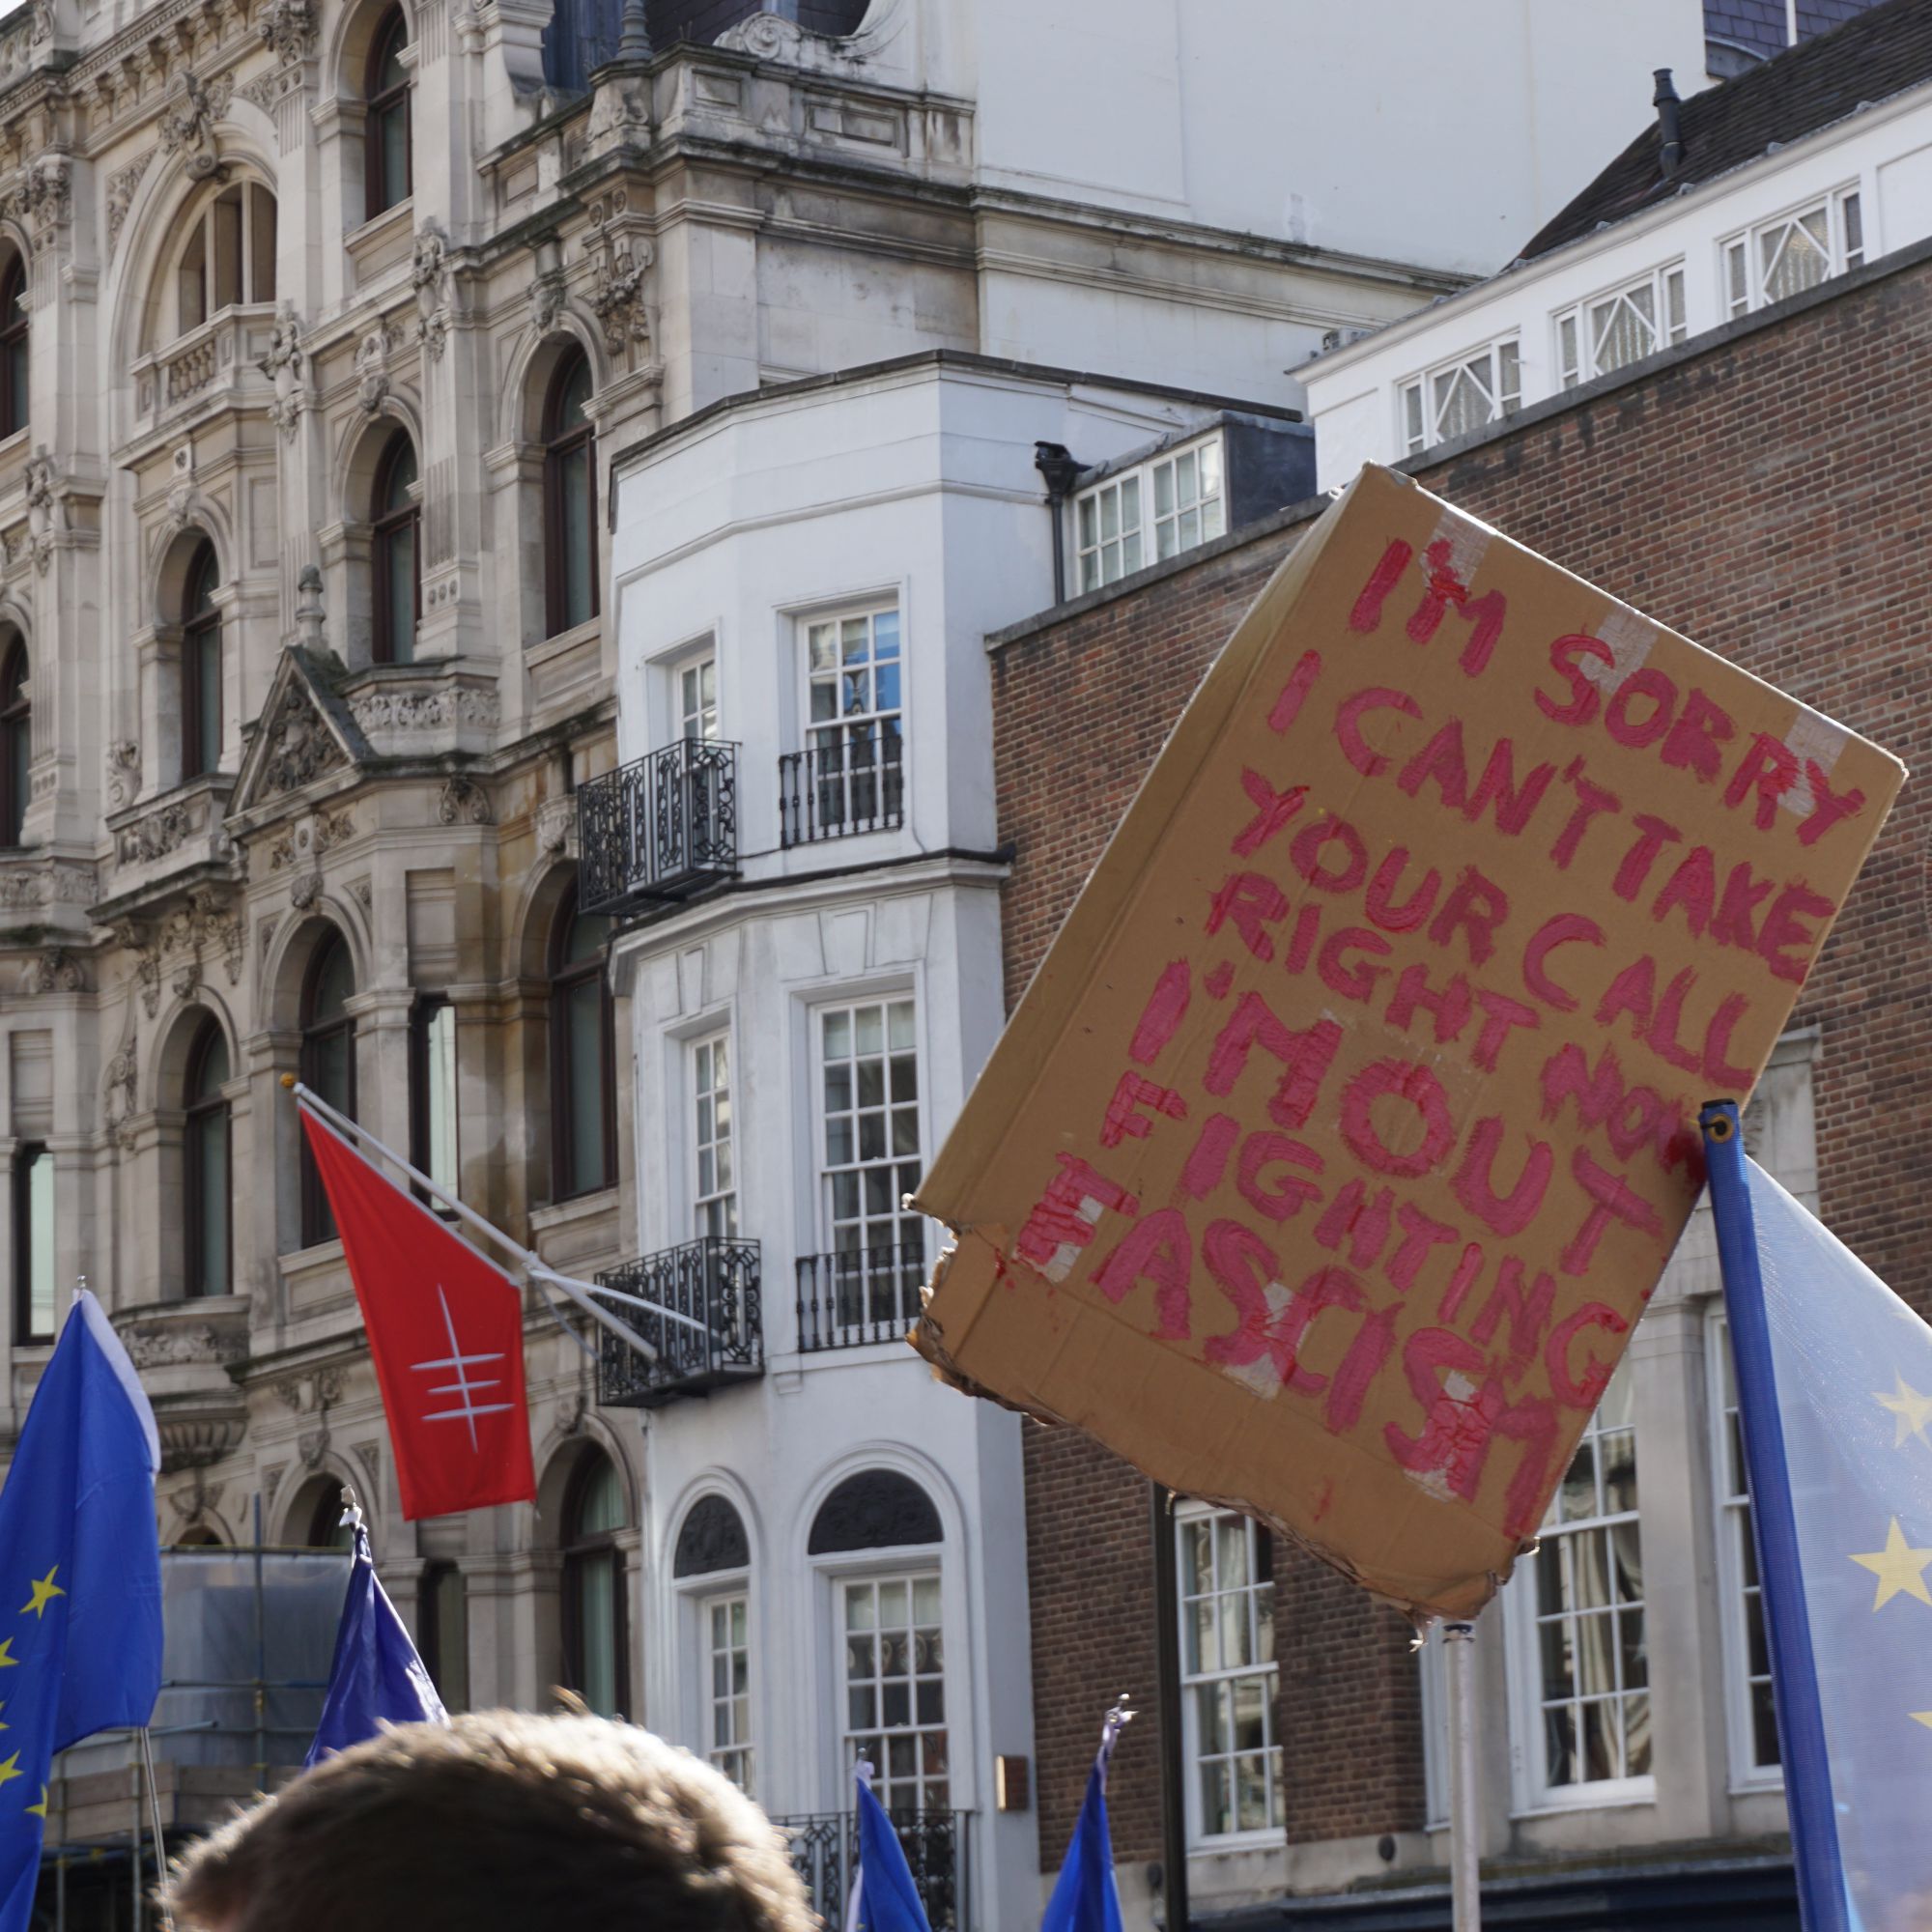 I'M SORRY
I CAN'T TAKE
YOUR CALL
RIGHT NOW
I'M OUT
FIGHTING
FASCISM